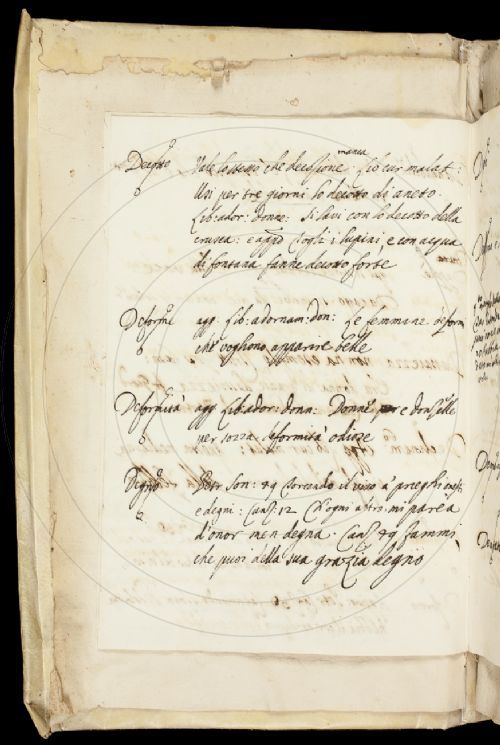 Vale lo stesso che decozione. manca Lib. cur. malat:
Usi per tre giorni lo decotto di aneto.
Lib: ador: donne: Si lavi con lo decotto della
crusca: e appo Togli i lupini e con acqua
di fontana fanne decotto forte
Deforme agg. Lib: adornam: don: Le femmine deform
che vogliono apparire belle
Deformità app Lib: ador: donn: Donne e donzelle
per sozza deformità odiose
Degno Petr Son: 89 torcendo il viso a' preghi
e degni: Canz: 12 Ch'ogni altro mi parea
d'onor men degna. Canz 49 fammi
che puoi della sua grazia degno